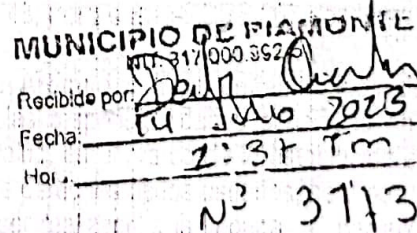 MUNICIPIO DE PIAMONTE
NIT 817 000.992
Recibido por:
Fecha: 14 Julio 2023
Hor. 2:37 Pm
N° 3113